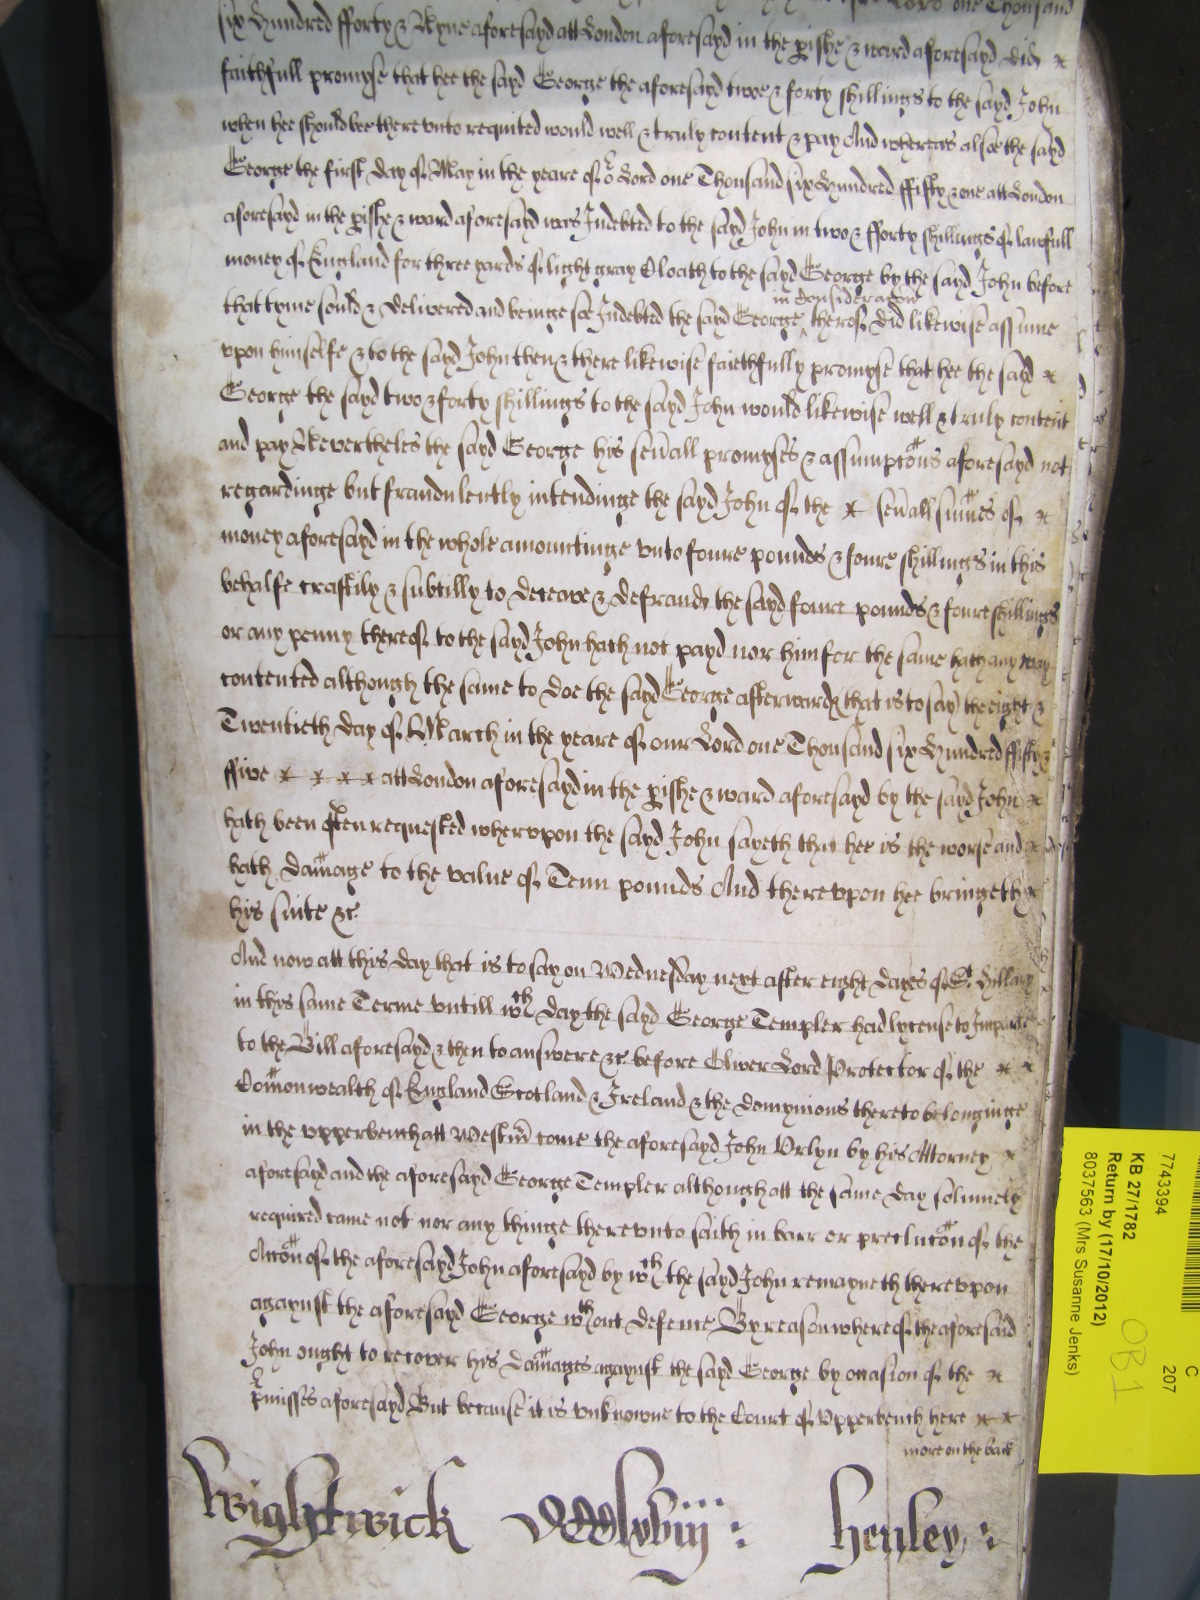 Lord one Thousand
six Hundred fforty & Nyne aforesayd att London aforesayd in the pishe & ward aforesayd did
faithfull promyse that hee the sayd George the aforesayd twoe & forty shillings to the sayd John
when hee should bee therevnto requited would well & truly content & pay And whereas alsoe the sayd
George the first day of May in the yeare of or Lord one Thousand six Hundred ffifty & one att London
aforesayd in the pishe & ward aforesayd was Indebted to the sayd John in two & fforty shillings of lawfull
money of England for three yards of light gray Cloath to the sayd George by the sayd John before
that tyme sould & delivered and beinge soe Indebted the sayd George in consideracon thereof did likewise assume
vpon himselfe & to the sayd John then & there likewise faithfully promyse that hee the said
George the sayd two & forty shillings to the sayd John would likewise well & truly content
and pay Nevertheles the sayd George his seuall promyses & assumptons aforesayd not
regardinge but fraudulently intendinge the sayd John of the seuall sumes of
money aforesayd in the whole amountinge vnto foure pounds & foure shillings in this
behalfe craftily & subtilly to deceave & defraude the sayd foure pounds & foure shillings
or any penny thereof to the sayd John hath not payd nor him for the same hath any way
contented although the same to doe the sayd George afterwards (that is to say) the eight &
Twentieth day of March in the yeare of our Lord one Thousand six Hundred ffifty &
ffive att London aforesayd in the pishe & ward aforesayd by the sayd John
hath been often requested wherevpon the sayd John sayeth that hee is the worse and
hath damage to the value of Tenn pounds And therevpon hee bringeth
his suite &c.
And now att this day that is to say on Wednesday next after eight dayes of St. Hillary
in thys same Terme vntill wch day the sayd George Templer had lycense to Imparle
to the Bill aforesayd & then to answere &c. before Oliver Lord Protector of the
Comonwealth of England Scotland & Ireland & the domynions thereto belonginge
in the vpperbench att Westm come the aforesayd John Vrlyn by his Attorney
aforesayd and the aforesayd George Templer although att the same day solemnely
required came not nor any thinge therevnto saith in barr or precluton of the
Accon of the aforesayd John aforesayd by wch the sayd John remayneth therevpon
agaynst the aforesayd George wthout defence By reason whereof the aforesaid
John ought to recover his damages agaynst the sayd George by occasion of the
pmisses aforesayd But because it is vnknowne to the Court of Vpperbench here
more on the back
Wightwick Henley
7743394
KB 27/1782
Return by (17/10/2012)
8037563 (Mrs Susanne Jenks)
C
207
OB1